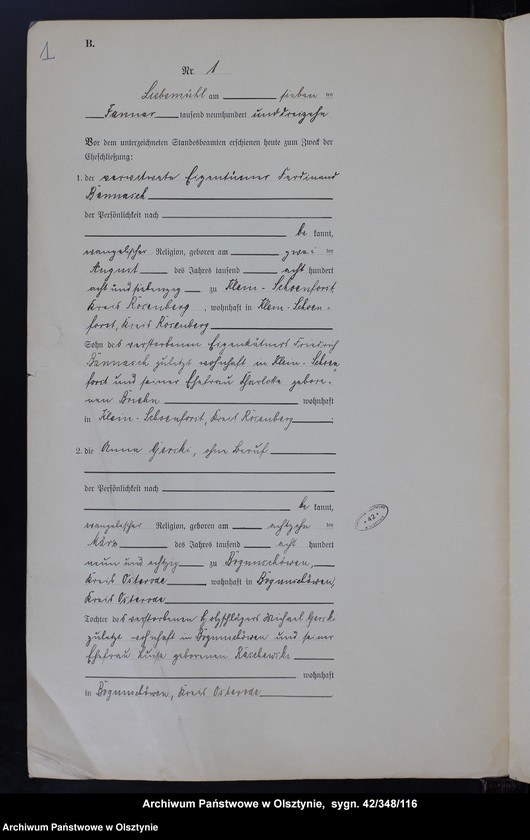 1
B.
Nr. 1
Liebemühl am sieben ten
Januar tausend neunhundert und dreizehn
Vor dem unterzeichneten Standesbeamten erschienen heute zum Zweck der
Eheschließung:
1. der verwitwete Eigentümer Ferdinand
der Persönlichkeit nach
be kannt,
evangelischer Religion, geboren am zwei ten
August des Jahres tausend acht hundert
acht und siebenzig zu Klein-Schoenforst
Kreis Rosenberg, wohnhaft in Klein-Schoen-
forst, Kreis Rosenberg
Sohn des verstorbenen Eigenkätners Friedrich
zuletzt wohnhaft in Klein-Schoen
forst und seiner Ehefrau Charlotte gebore-
nen wohnhaft
in Klein-Schoenforst, Kreis Rosenberg;
2. die Anna Gorski, ohne Beruf
der Persönlichkeit nach
be kannt,
evangelischer Religion, geboren am achtzehn ten
März des Jahres tausend acht hundert
neun und achtzig zu Bogunschöwen,
Kreis Osterode wohnhaft in Bogunschöwen,
Kreis Osterode
Tochter des verstorbenen Michael Gorski
zuletzt wohnhaft in Bogunschöwen und seiner
Ehefrau Luise geborenen
wohnhaft
in Bogunschöwen, Kreis Osterode
42
Archiwum Państwowe w Olsztynie, sygn. 42/348/116
Archiwum Państwowe w Olsztynie